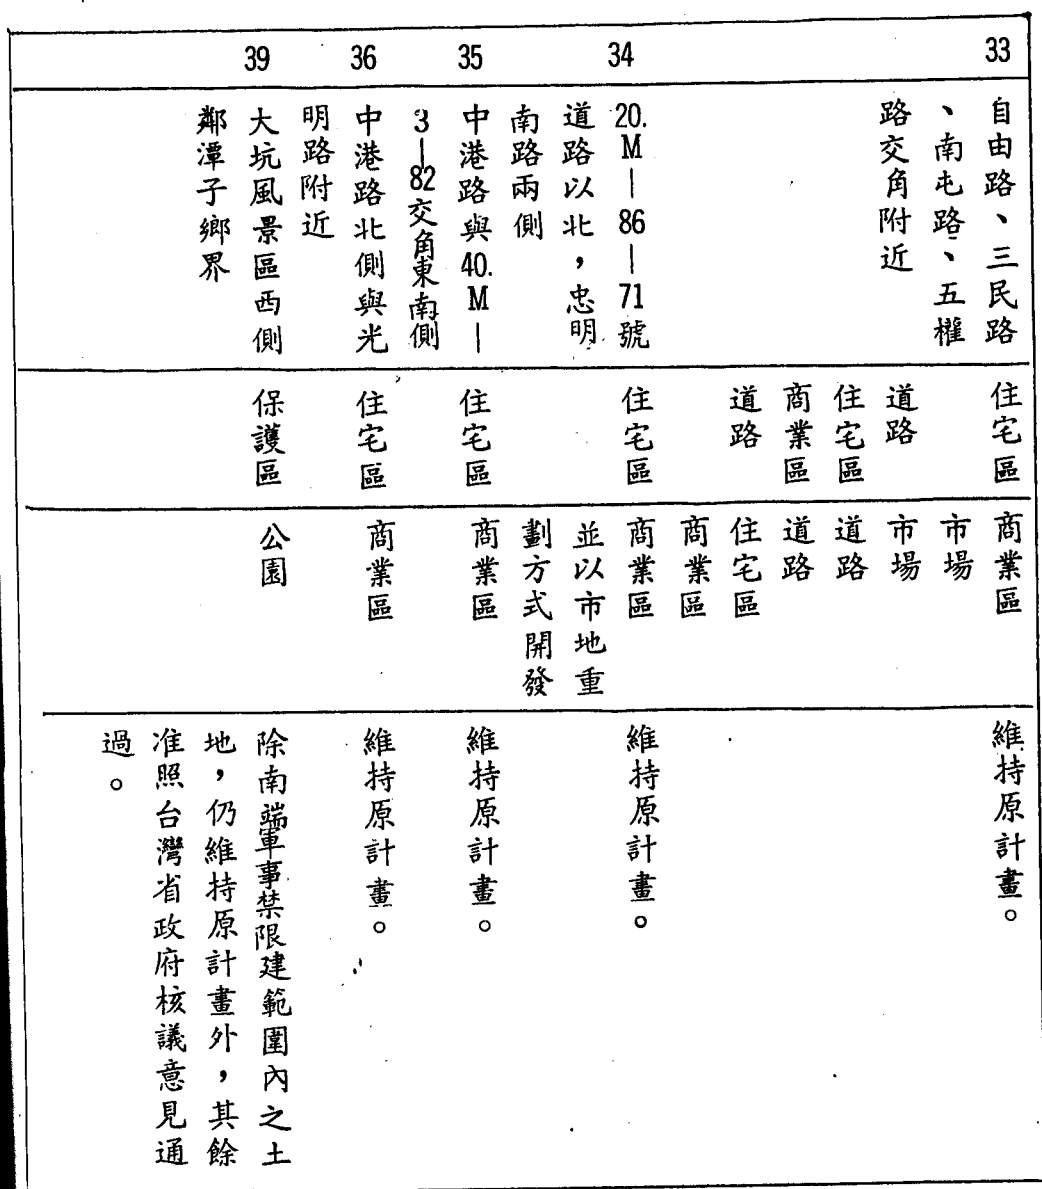 33
自由路、三民路
、南屯路、五權
路交角附近
住宅區
道路
住宅區
商業區
道路
商業區
市場
市場
道路
道路
住宅區
商業區
維持原計畫。
34
20.M—86—71號
道路以北，忠明
南路兩側
住宅區
商業區
並以市地重
劃方式開發
維持原計畫。
35
中港路與40.M—
3—82交角東南側
住宅區
商業區
維持原計畫。
36
中港路北側與光
明路附近
住宅區
商業區
維持原計畫。
39
大坑風景區西側
鄰潭子鄉界
保護區
公園
除南端軍事禁限建範圍內之土
地，仍維持原計畫外，其餘
准照台灣省政府核議意見通
過。